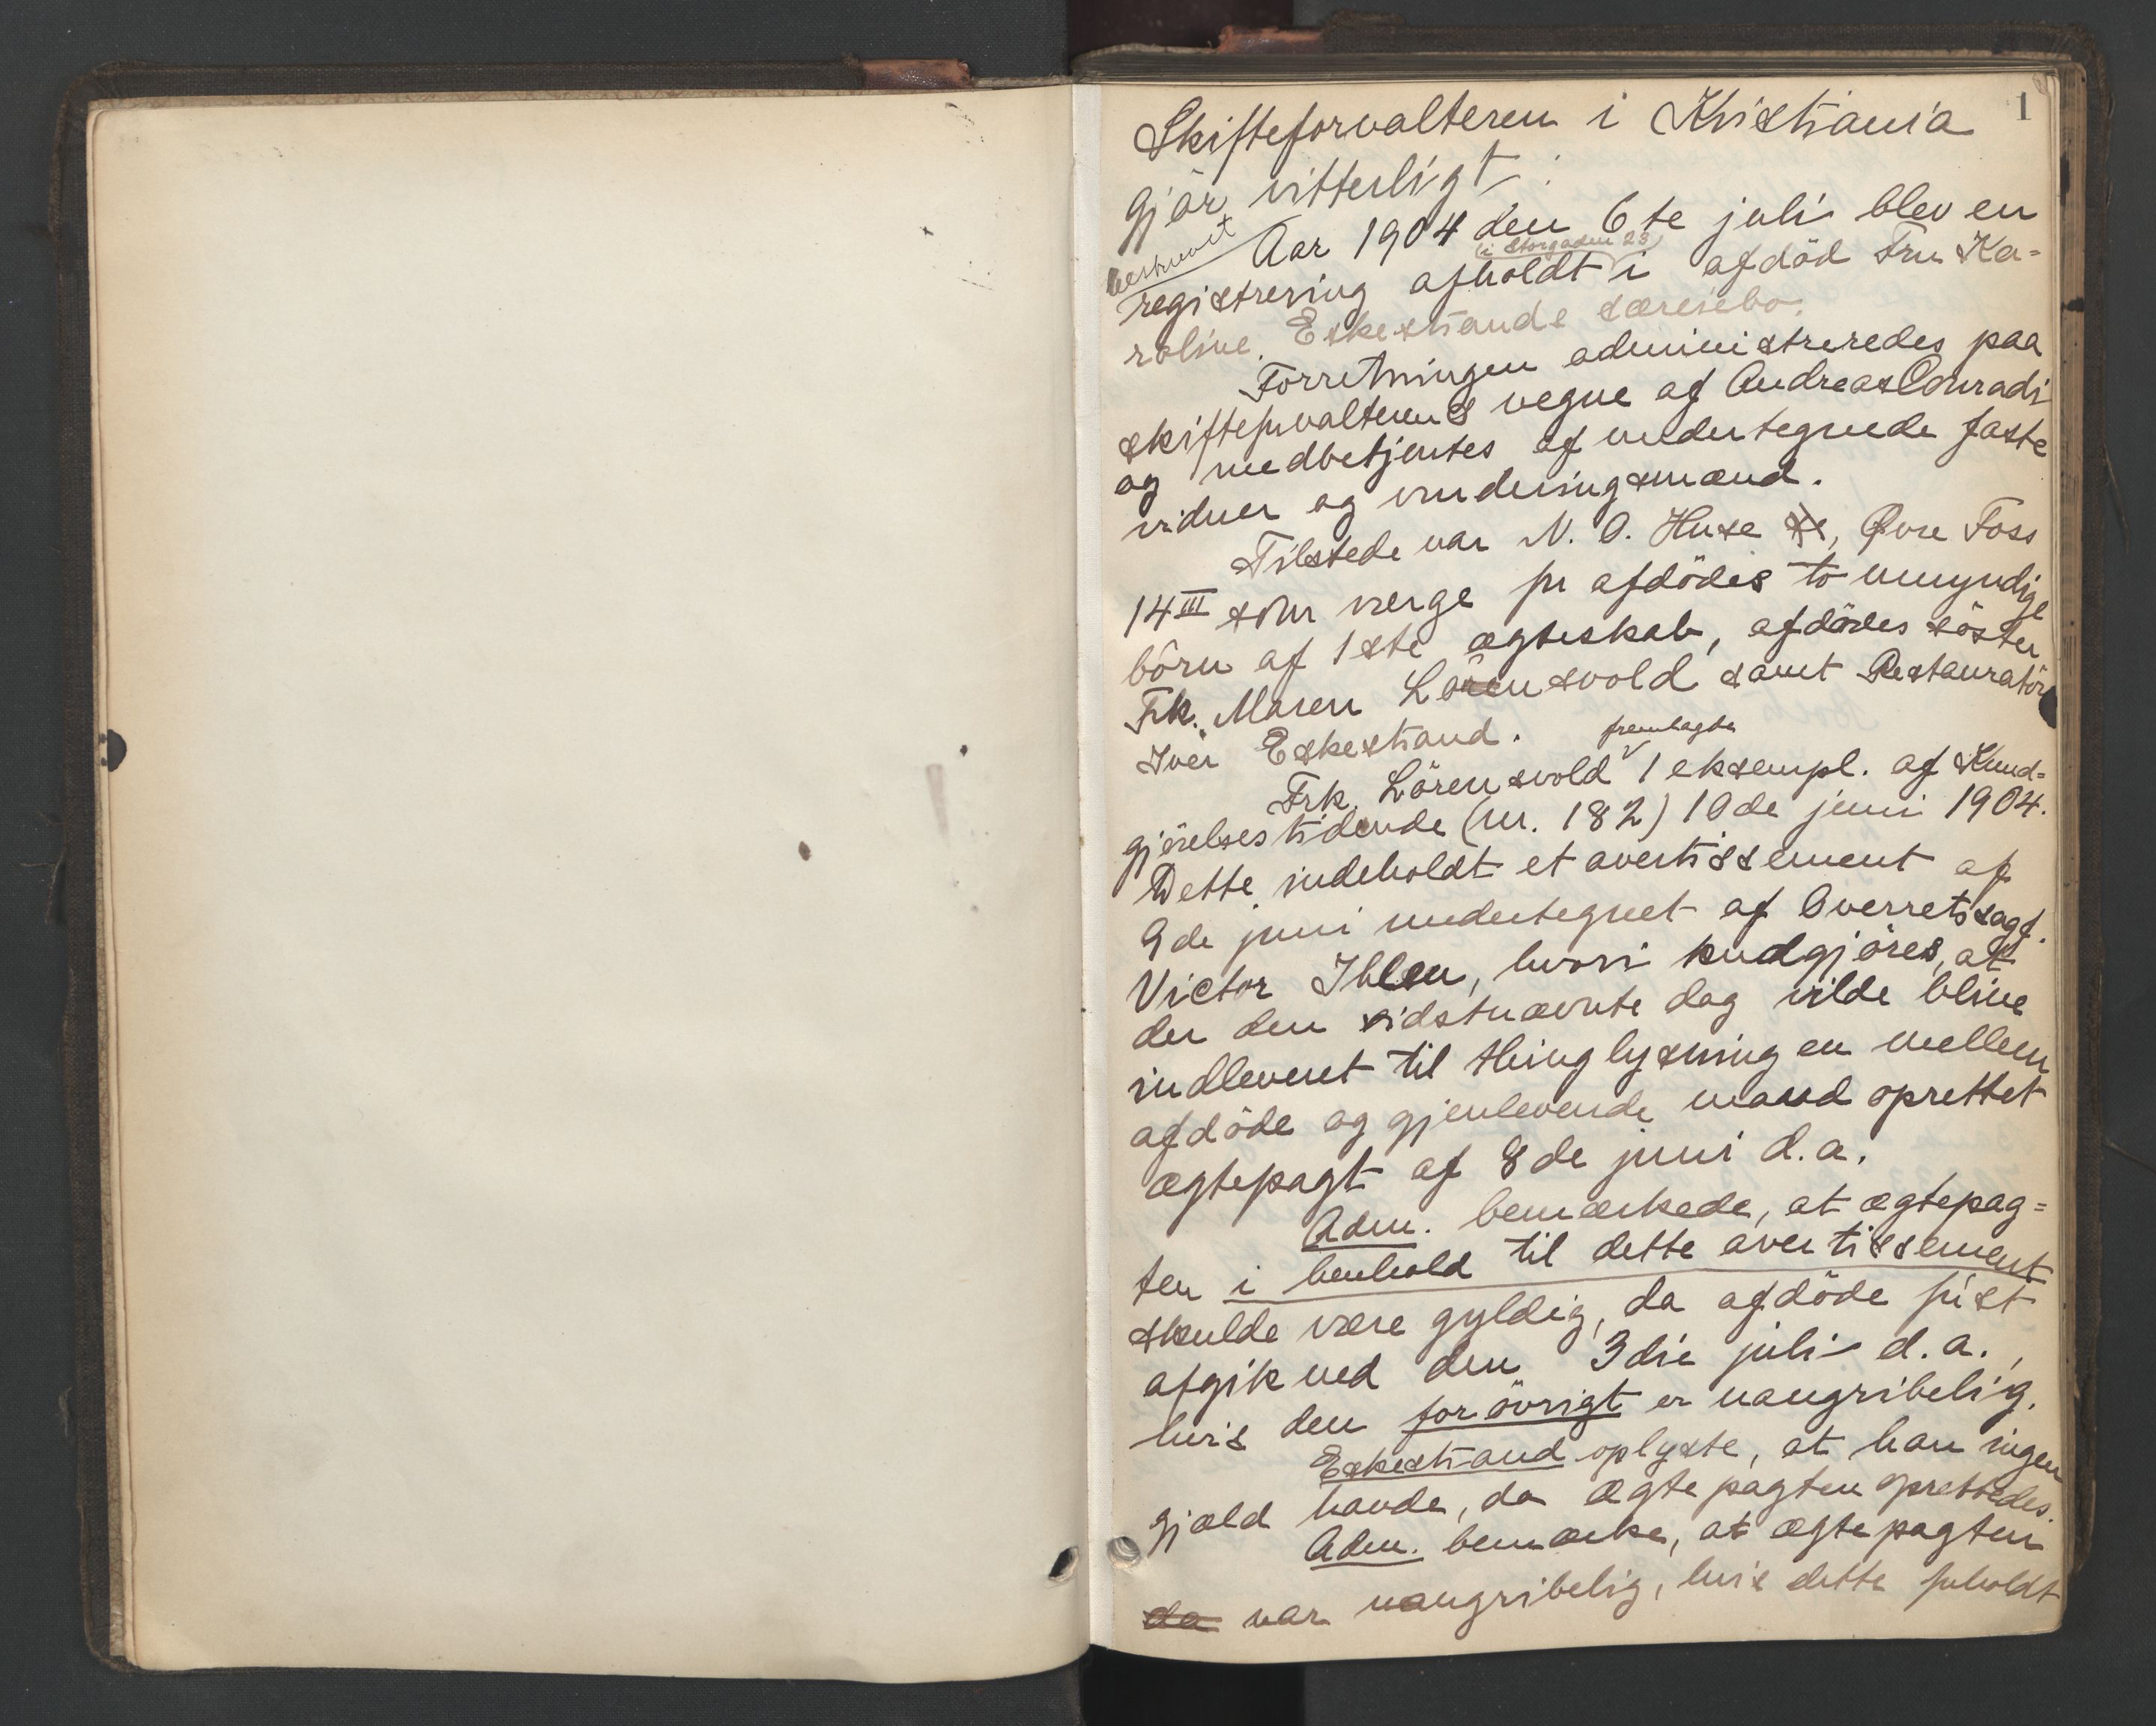 1
Skifteforvalteren i Kristiania
gjör vitterligt:
Aar 1904 den 6te juli blev en
beskrevet
(i Storgaden 23)
registrering afholdt i afdöd Fru Ka-
roline Eskestrands særeiebo.
Forretningen administreredes paa
skifteforvalterens vegne af Andreas Conradi
og medbetjentes af undertegnede faste
vidner og vurderingsmænd.
Tilstede var N. O. Huse, Øvre Foss
14 III som værge for afdödes to umyndige
börn af 1ste ægteskab, afdödes söster
Frk. Maren Lörensvold samt Restauratör
Iver Eskestrand.
fremlagde
Frk. Lörensvold 1 eksempl. af Kund-
gjörelsestidende (nr. 182) 10de juni 1904.
Dette indeholdt et avertissement af
9de juni undertegnet af Overretssagf.
Victor Ihlen, hvori kundgjöres, at
der den sidstnævnte dag vilde blive
indleveret til thinglysning en mellem
afdöde og gjenlevende mand oprettet
ægtepagt af 8de juni d.a.
Adm. bemærkede, at ægtepag-
ten i henhold til dette avertissement
skulde være gyldig, da afdöde först
afgik ved den 3die juli d.a.,
hvis den forövrigt er uangribelig.
Eskestrand oplyste, at han ingen
gjæld havde, da ægtepagten oprettedes.
Adm. bemærke, at ægtepagten
da var uangribelig, hvis dette forholdt